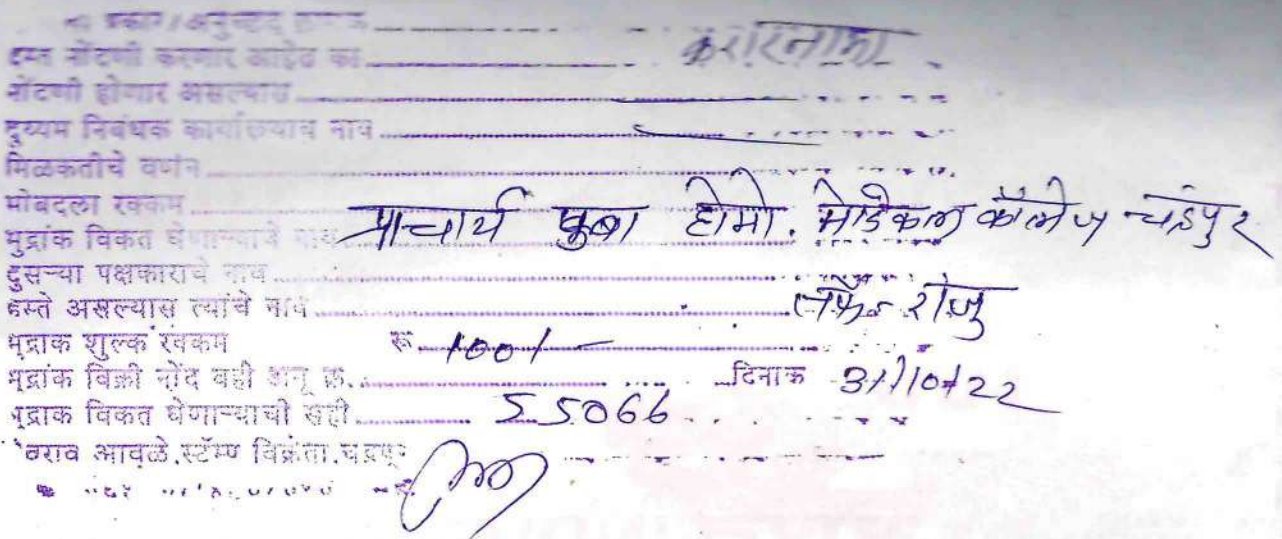 प्रकार / अनुच्छेद
दस्त नोंदणी करणार आहेत का करारनामा
नोंदणी होणार असल्यास
दुय्यम निबंधक कार्यालयाचे नाव
मिळकतीचे वर्णन
मोबदला रक्कम
मुद्रांक विकत घेणाऱ्याचे नाव प्राचार्य होमो. मेडिकल कॉलेज चंद्रपुर
दुसऱ्या पक्षकाराचे नाव
हस्ते असल्यास त्यांचे नाव राजु
मुद्रांक शुल्क रक्कम रू. 100/-
मुद्रांक विक्री नोंद वही अनू क्र. दिनांक 31/10/22
मुद्रांक विकत घेणाऱ्याची सही 55066
आवळे.स्टॅम्प विक्रेता.चंद्रपूर